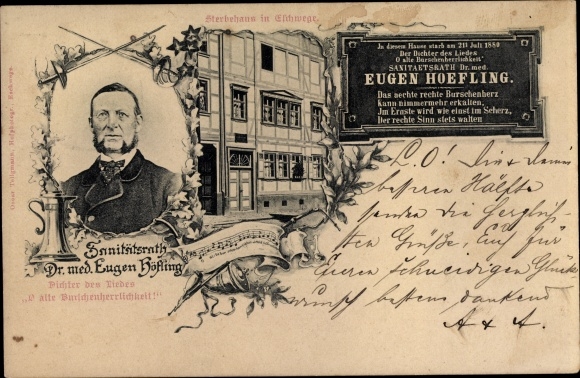 Sterbehaus in Eschwege.
In diesem Hause starb am 21 Juli 1880
Der Dichter des Liedes
O alte Burschenherrlichkeit"
SANITAETSRATH Dr. med.
EUGEN HOEFLING.
Das aechte rechte Burschenherz
Kann nimmermehr erkalten,
Im Ernste wird wie einst im Scherz,
Der rechte Sinn stets walten
Sanitätsrath
Dr. med. Eugen Höfling
Dichter des Liedes
„O alte Burschenherrlichkeit!"
L. O! Die &
besseren Hälfte
senden die herzlich-
sten Grüße, Euch für
Eueren schneidigen Glück-
wunsch bestens dankend
A & A.